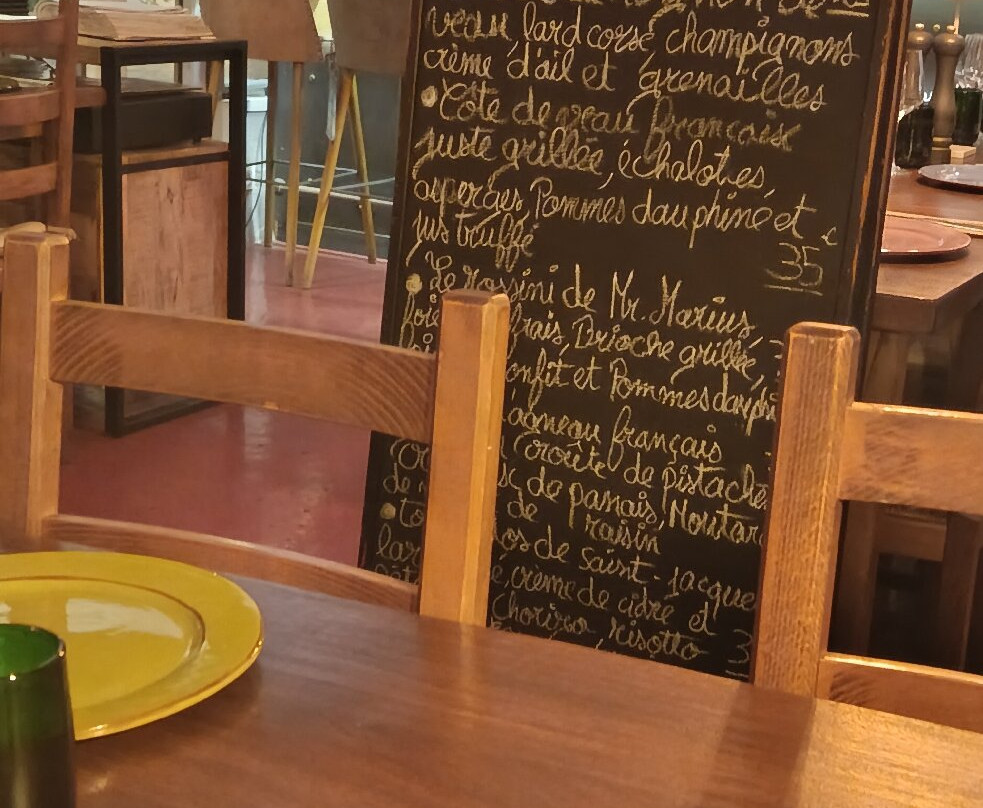 veau, lard corse, champignons
crème d'ail et grenailles
Côte de veau française
juste grillée, échalottes,
asperges, Pommes dauphine et
jus truffé 35 €
Le rossini de Mr. Marius,
foie frais, Brioche grillée,
onfit et Pommes dauphi
agneau français
Croûte de pistache
de panais, Moutar
de raisin
de saint-jacque
crème de cidre et
chorizo, risotto 3